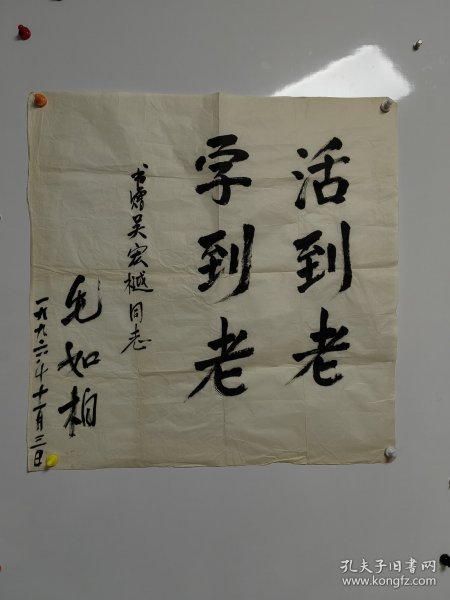 活到老
学到老
书赠吴宏樾同志
毛如柏
一九九六年十一月三日
孔夫子旧书网
www.kongfz.com